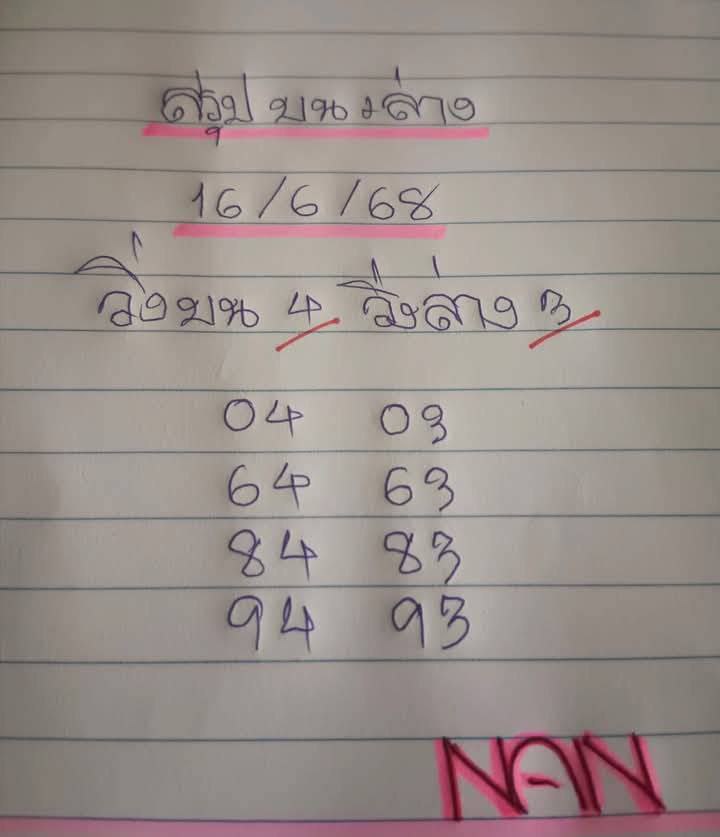 สรุป บน+ล่าง
16/6/68
วิ่งบน 4 วิ่งล่าง 3
04 03
64 63
84 83
94 93
NAN